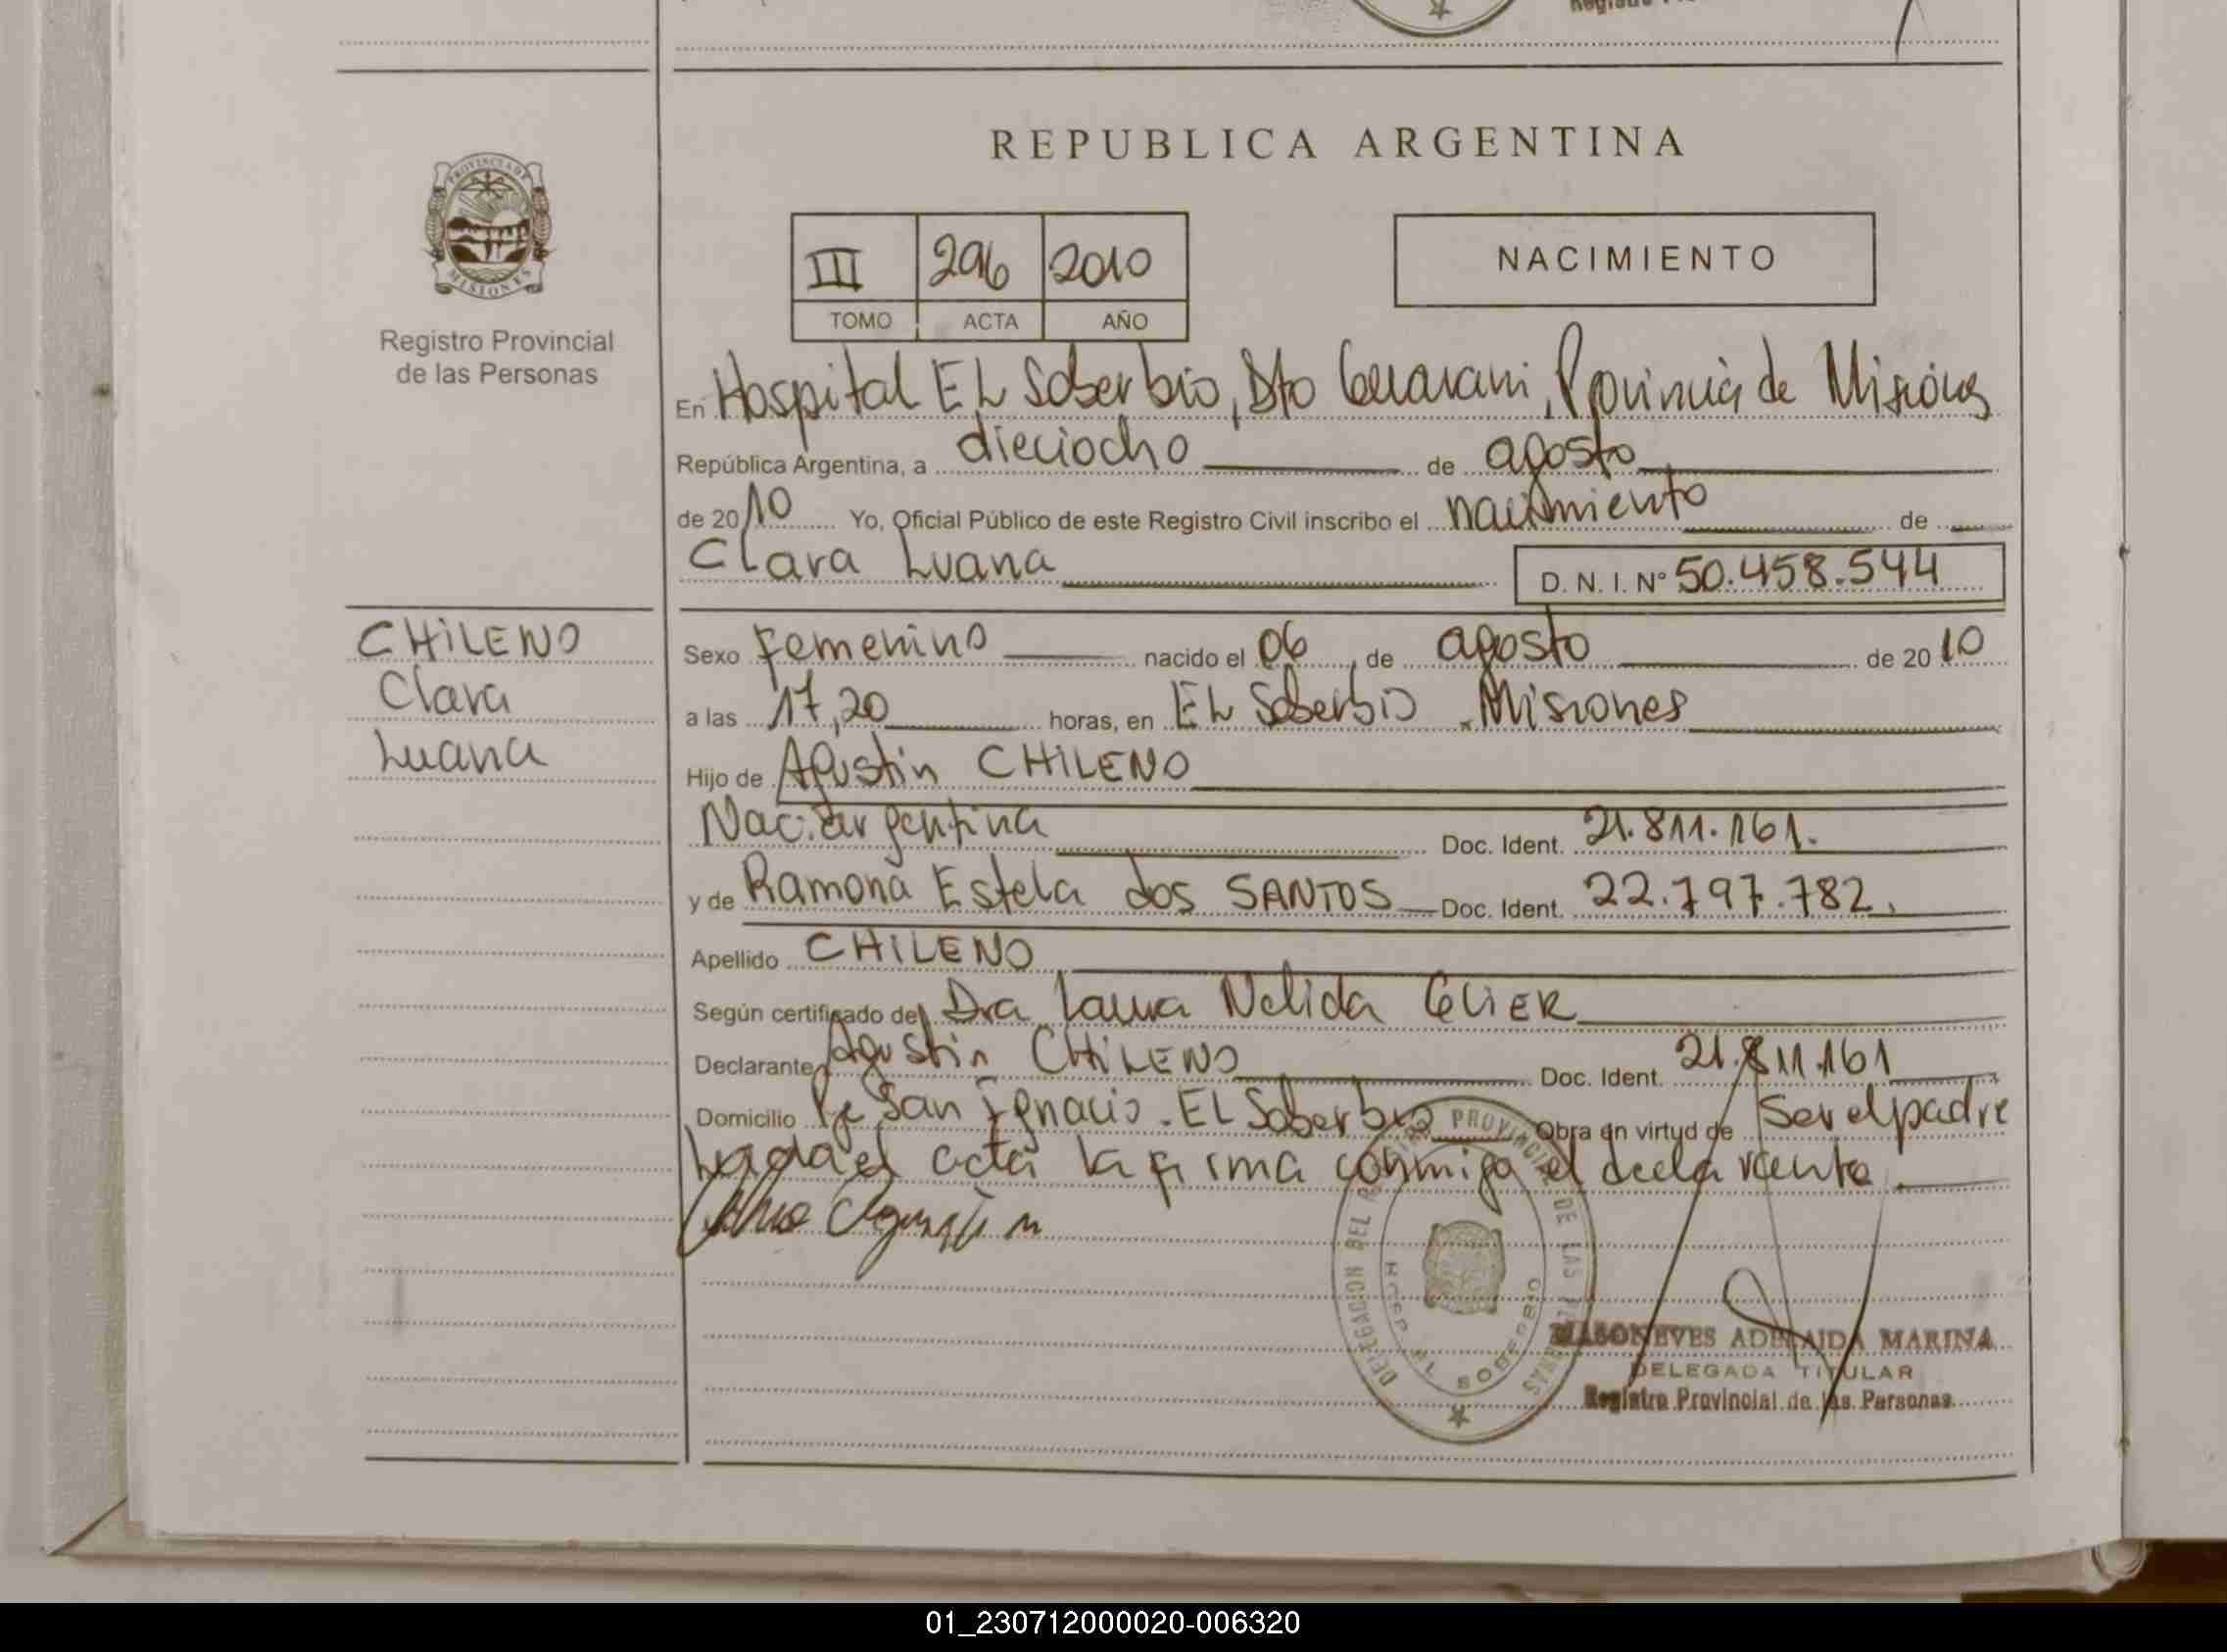 REPUBLICA ARGENTINA
PROVINCIA DE
MISIONES
Registro Provincial
de las Personas
III 296 2010
TOMO ACTA AÑO
NACIMIENTO
En Hospital EL Soberbio, Dto Guarani, Provincia de Misiones
República Argentina, a dieciocho de agosto
de 2010 Yo, Oficial Público de este Registro Civil inscribo el nacimiento de
Clara Luana D. N. I. Nº 50.458.544
CHILENO
Clara
Luana
Sexo Femenino nacido el 06, de agosto de 2010
a las 17,20 horas, en EL Soberbio . Misiones
Hijo de Agustin CHILENO
Nac. argentina Doc. Ident. 21.811.161.
y de Ramona Estela dos SANTOS Doc. Ident. 22.797.782.
Apellido CHILENO
Según certificado de Dra Laura Nelida GLIER
Declarante Agustin CHILENO Doc. Ident. 21.811.161
Domicilio San Ignacio - EL Soberbio Obra en virtud de Ser el padre
acta la firma conmigo el declarante.
Agustin
DELEGACION DEL PROVINCIAL DE LAS PERSONAS
HOSP EL SOBERBIO
ADELAIDA MARINA
DELEGADA TITULAR
Registro Provincial de las Personas
01_230712000020-006320